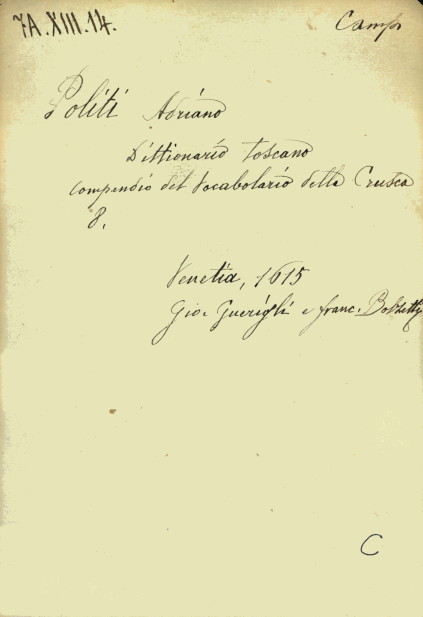 7A.XIII.14.
Camp
Politi Adriano
Dittionario toscano
compendio del Vocabolario della Crusca
8.
Venetia, 1615
Gio. Guerigli e franc. Bolzetta
C